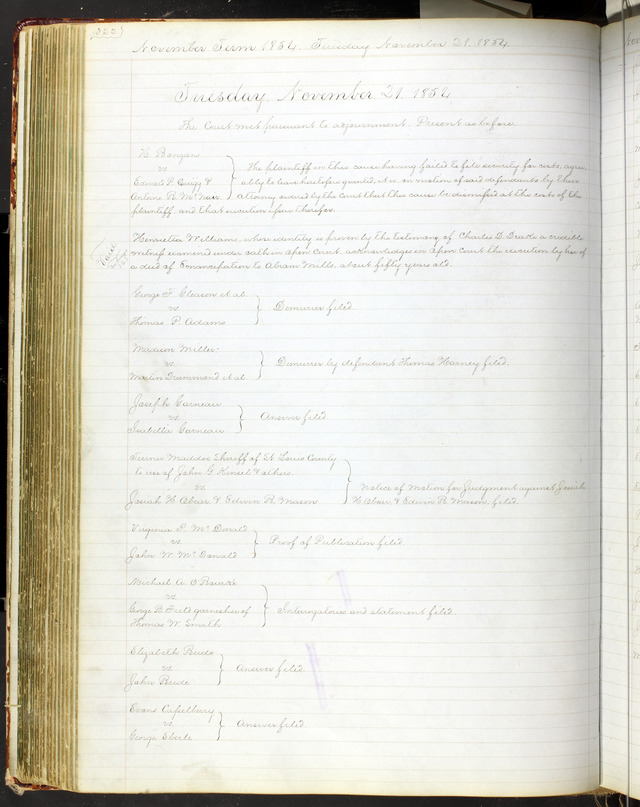 222
November Term 1854. Tuesday November 21. 1854
Tuesday November 21 1854
The Court met pursuant to adjournment. Present as before
H. Bangans
vs
& 
Antoine R. McNair.
The plaintiff in this cause having failed to file security for costs,
ably to leave heretofore granted, it is on motion of said defendants by their
attorney ordered by the Court that this cause be dismissed at the costs of the
plaintiff, and that execution issue therefor.
Henrietta Williams, whose identity is proven by the testimony of Charles D. Drake a credible
witness examined under oath in open Court, acknowledges in open Court the execution by her of
a deed of Emancipation to Abram Mills, about fifty years old.
George F. Gleason et al
vs
Thomas P. Adams
Demurrer filed
Madison Miller
vs
Martin Drummond et al
Demurrer by defendant Thomas Harney filed.
Joseph Carneau
vs
Isabella Carneau
Answer filed
Maddox Sheriff of St Louis County
to use of John G. & others
vs
Josiah H. Obear & Edwin R. Mason
Notice of Motion for Judgment against Josiah
H. Obear & Edwin R. Mason, filed.
Virginia P. McDonald
vs
John W. McDonald
Proof of Publication filed
Michael A.
vs
George B. Field garnishee of
Thomas W. Smith
Interrogatories and statement filed.
Elizabeth
vs
John
Answer filed
Evans
vs
George Eberle
Answer filed.